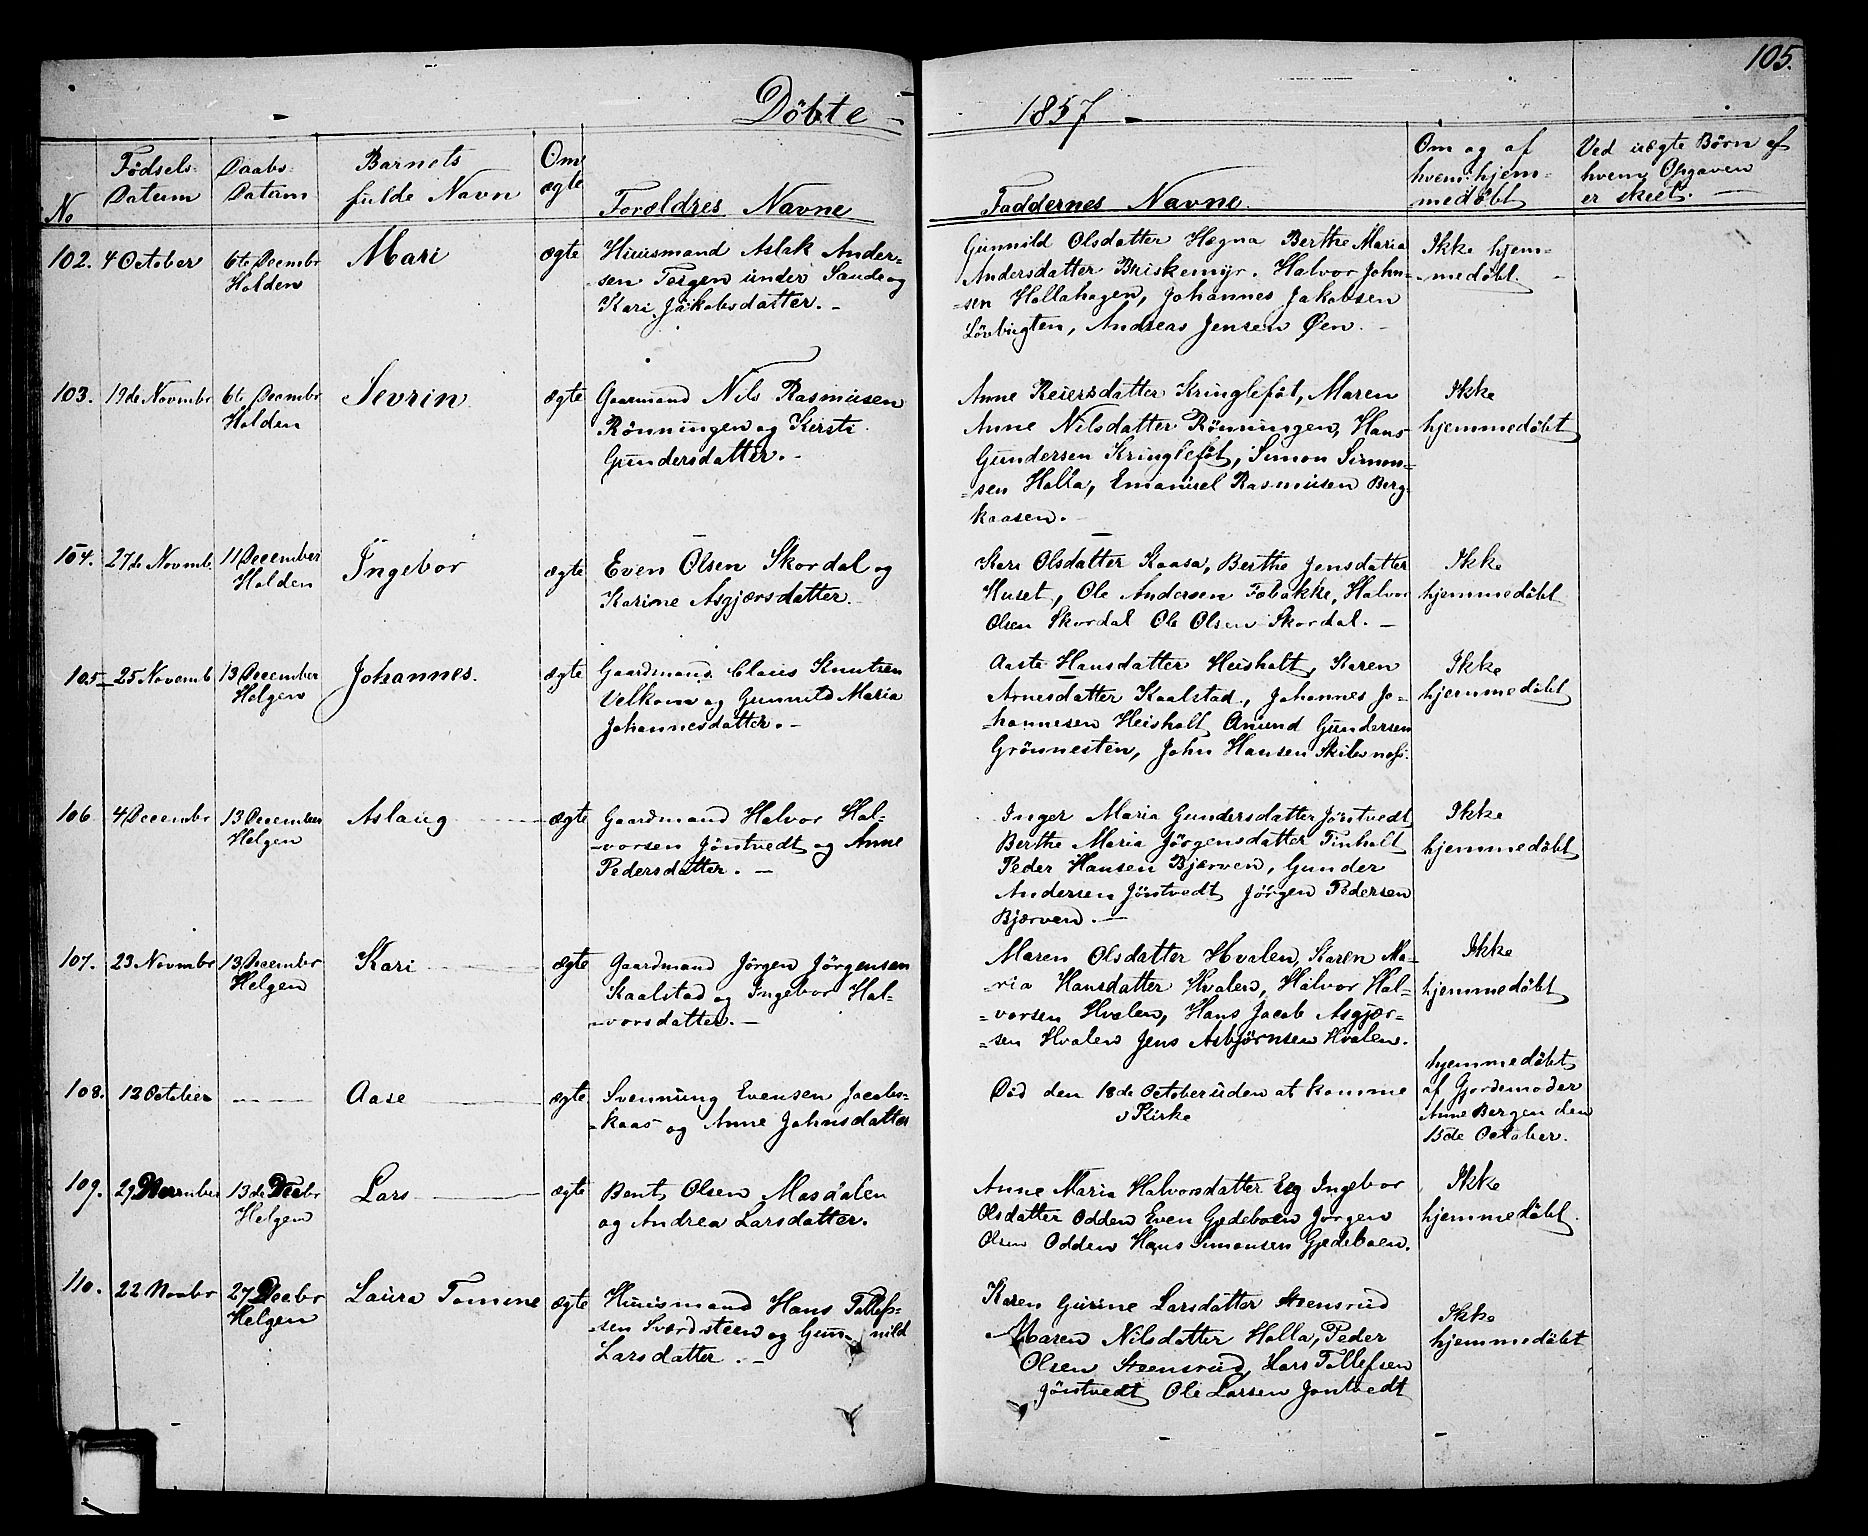 105.
Döbte – 1857 –
No
Födsels-
Datum
Daabs-
Datum
Barnets
fulde Navn
Om
ægte
Forældres Navne
Faddernes Navne.
Om og af
hvem hjem-
medöbt
Ved uægte Börn af
hvem Opgaven
er skeet. –
102. 4 October
6te Decembr
Holden
Mari
ægte
Huusmand Aslak Ander-
-sen Teigen under Saude og
Kari Jakobsdatter. –
Gunnild Olsdatter Hægna Berthe Maria
Andersdatter Briskemyr. Halvor John-
-sen Hollahagen, Johannes Jakobsen
Lövbugten, Andreas Jensen Øen. –
Ikke hjem-
-medöbt. –
103. 19de Novembr
6te Decembr
Holden
Sevrin
ægte
Gaarmand Nils Rasmusen
Rönningen og Kirsti
Gundersdatter. –
Anne Reiersdatter Kringleföt, Maren
Anne Nilsdatter Rönningen, Hans
Gundersen Kringleföt, Simon Simon-
-sen Holla, Emanuel Rasmusen Berg-
kaasen. –
Ikke
hjemmedöbt
104. 27de Novemb.
11 December
Holden
Ingebor
ægte
Even Olsen Skordal og
Karine Asgjærsdatter.
Kari Olsdatter Kaasa, Berthe Jensdatter
Huset, Ole Andersen Fobakke, Halvor
Olsen Skordal Ole Olsen Skordal. –
Ikke
hjemmedöbt
105 25 Novemb
13 December
Helgen
Johannes.
ægte
Gaardmand Claus Knutsen
Velkom og Gunnild Maria
Johannesdatter. –
Aaste Hansdatter Heisholt, Karen
Arnesdatter Kaalstad, Johannes Jo-
-hannesen Heisholt Anund Gundersen
Grönnesten, John Hansen
Ikke
hjemmedöbt
106 4 Decembr
13 December
Helgen
Aslaug
ægte
Gaardmand Halvor Hal-
-vorsen Jöntvedt og Anne
Pedersdatter. –
Inger Maria Gundersdatter Jöntvedt
Berthe Maria Jörgensdatter Finholt
Peder Hansen Bjærven, Gunder
Andersen Jöntvedt Jörgen Pedersen
Bjærven. –
Ikke
hjemmedöbt
107. 23 Novembr
13 December
Helgen
Kari
ægte
Gaardmand Jörgen Jörgensen
Kaalstad og Ingebor Hal-
-vorsdatter. –
Maren Olsdatter Hvalen, Karen Ma-
-ria Hansdatter Hvalen, Halvor Hal-
-vorsen Hvalen, Hans Jacob Asgjær-
-sen Hvalen Jens Asbjörnsen Hvalen.
Ikke
hjemmedöbt
108. 12 October
– – –
Aase
ægte
Svennung Evensen Jacobs-
-kaas og Anne Johnsdatter
Död den 18de October uden at komme
i Kirke
hjemmedöbt
af Gjordemoder
Anne Bergen den
15de October.
109. 29 November
13de Decbr
Helgen
Lars
ægte
Bent Olsen Masdalen
og Andrea Larsdatter.
Anne Maria Halvorsdatter Eeg Ingebor
Olsdatter Odden Even Gjedeboen Jörgen
Olsen Odden Hans Simonsen Gjedeboen.
Ikke
hjemmedöbt.
110. 22 Novbr
27 Decbr
Helgen
Laura Tomine
ægte
Huusmand Hans Tollef-
-sen Sværdsteen og Gunnild
Larsdatter. –
Karen Gurine Larsdatter Steensrud
Maren Nilsdatter Holla, Peder
Olsen Steensrud, Lars Tollefsen
Jöntvedt Ole Larsen Jontvedt
Ikke
hjemmedöbt